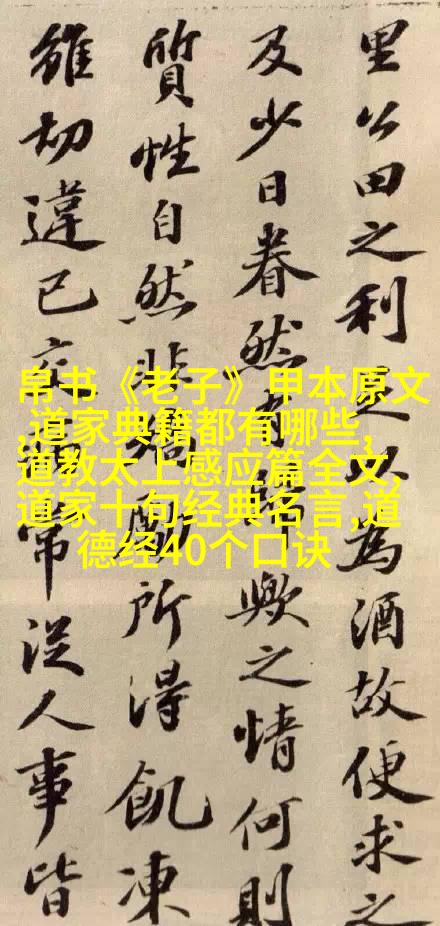 里公田之利足以為酒故便求之
及少日眷然有歸歟之情何則
質性自然非矯勵所得飢凍
雖切違己交病常從人事皆
帛书《老子》甲本原文
,道家典籍都有哪些,
道教太上感应篇全文,
道家十句经典名言,道
德经40个口诀